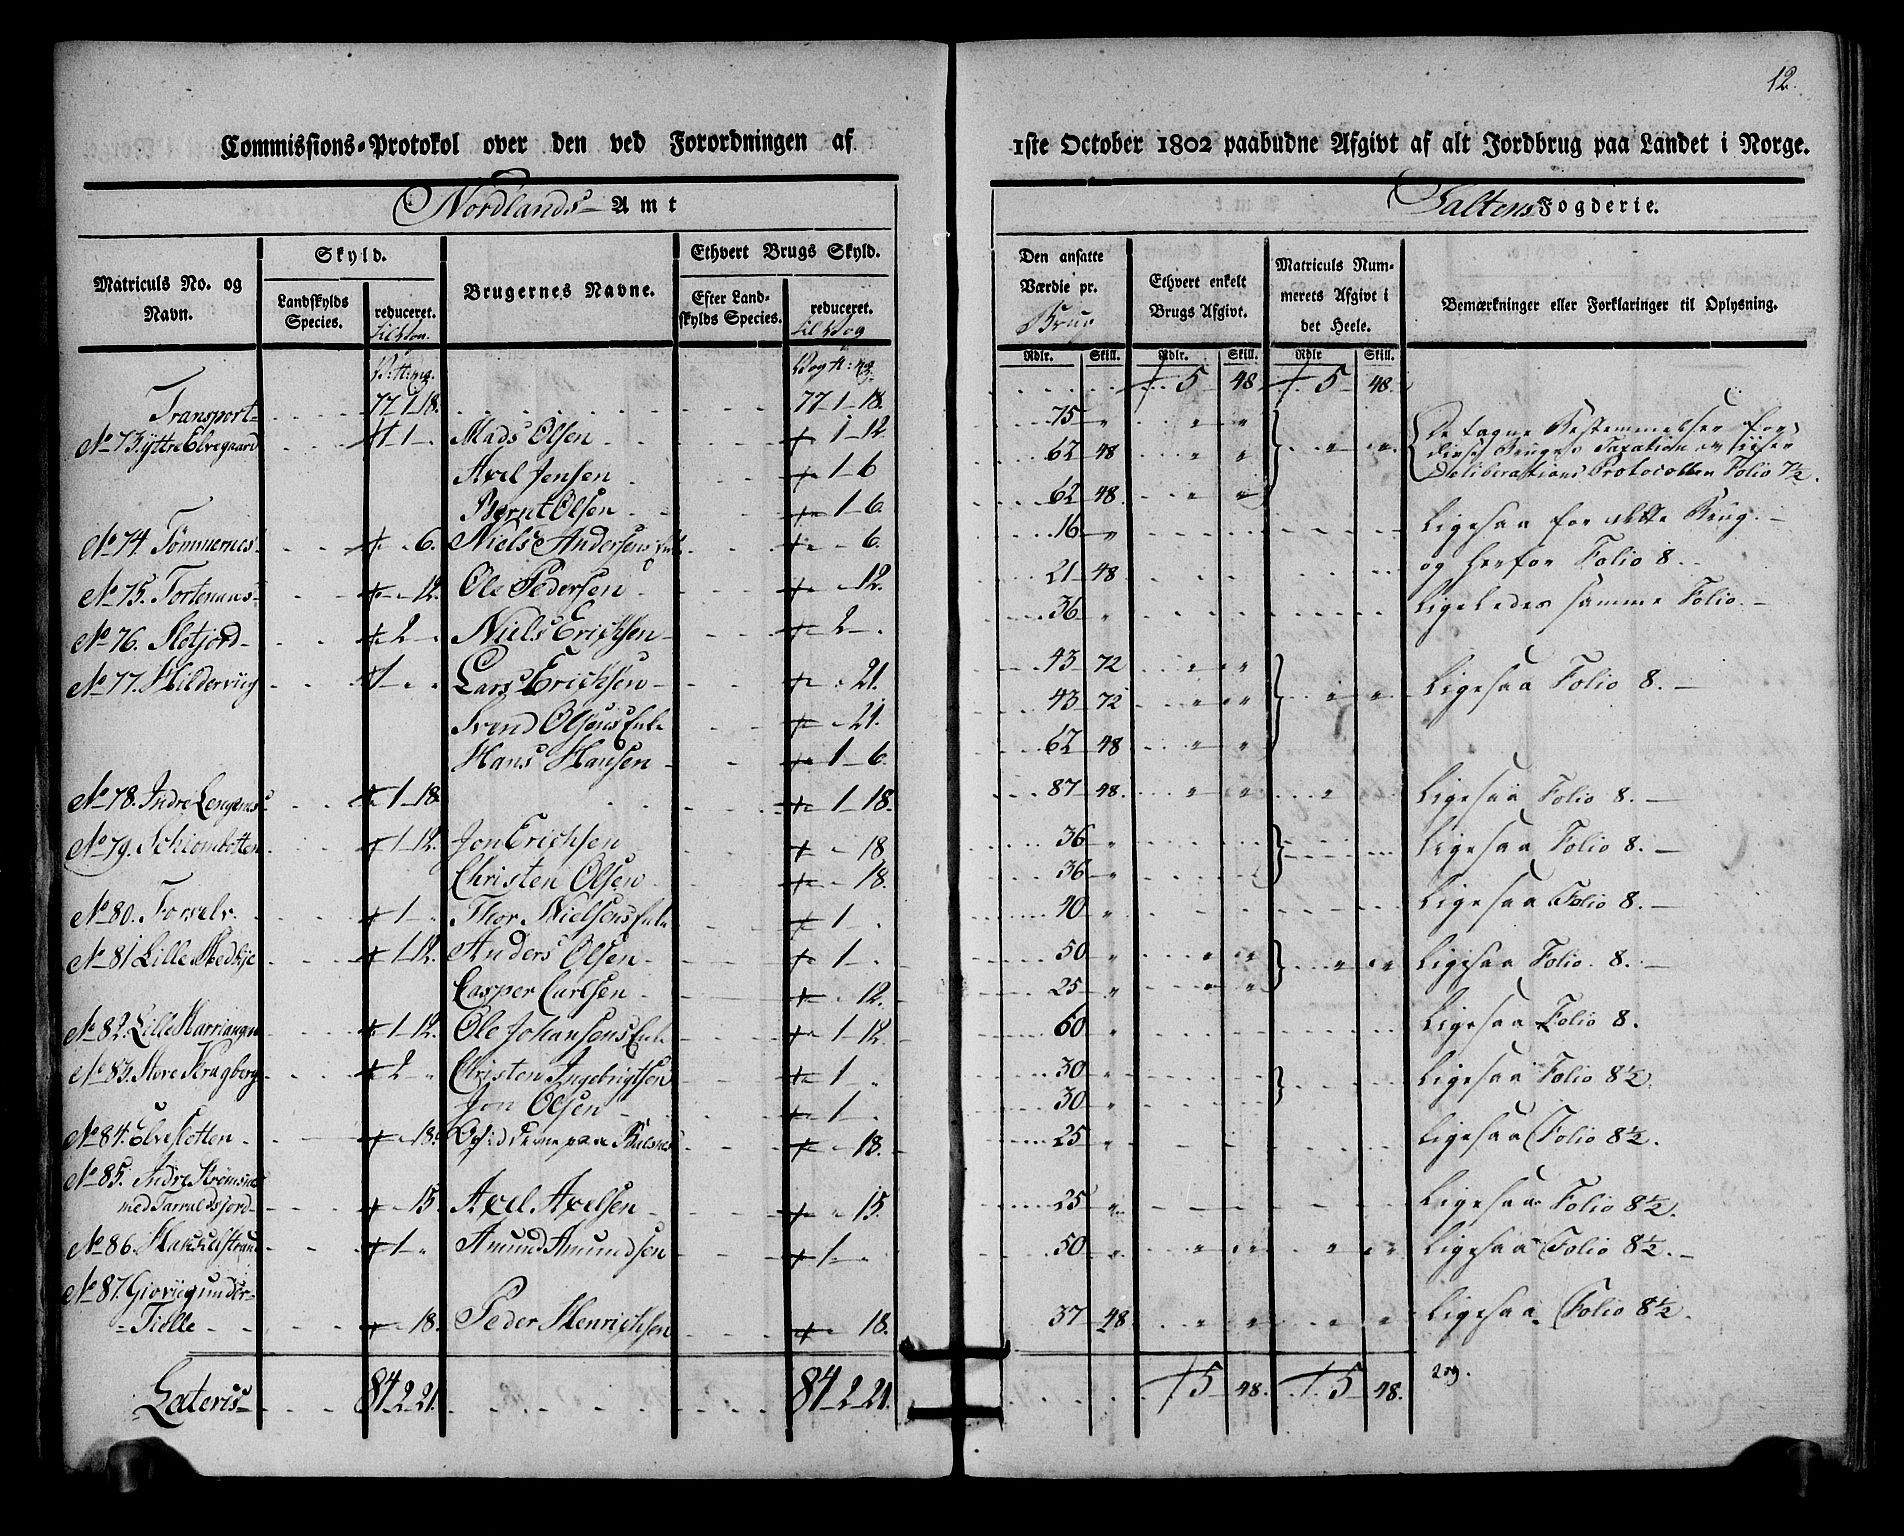 12.
Commissions-Protokol over den ved Forordningen af 1ste October 1802 paabudne Afgivt af alt Jordbrug paa Landet i Norge.
Nordlands Amt
Saltens Fogderie.
Matriculs No. og Navn.
Skyld.
Landskylds Species.
reduceret.
Brugernes Navne.
Ethvert Brugs Skyld.
Efter Landskylds Species.
reduceret.
Den ansatte Værdie pr. Brug
Ethvert enkelt Brugs Afgivt.
Matriculs Nummerets Afgivt i det Heele.
Bemærkninger eller Forklaringer til Oplysning.
Rdlr. Skill. Rdlr. Skill. Rdlr Skill.
Transport 77 1 18. 77 1 18 5 48 5 48
No 73. ytre Elvegaard 1 Mads Olsen 1 12 75
Axel Jensen 1 6 62 48
Bernt Olsen 1 6. 62 48
De tagne Bestemmelser for
disse Bruges Taxation
Deliberations Protocollen Folio 7½.
No 74. Tømmernes 6. Niels Andersens Enke 6. 16 Ligesaa for dette Brug.
No 75. 12. Ole Pedersen 12. 21 48 og herfor Folio 8.
No 76. 2 Niels Erichsen 2 36 Ligeledes samme Folio.
No 77. Hilderviig 1 Lars Erichsen 21. 43 72 Ligesaa Folio 8.
Svend Olsens Enke 21. 43 72
Hans Hansen 1 6 62 48
No 78. Indre Lengenes 1 18. 1 18. 87 48. Ligesaa Folio 8.
No 79. Schiombotten 1 12. Jon Erichsen 18 36 Ligesaa Folio 8.
Christen Olsen 18. 36
No 80. Forselv. 1 Thor Nielsens Enke 1 40 Ligesaa Folio 8.
No 81 Lille 1 12. Anders Olsen 1 50 Ligesaa Folio. 8.
Casper Carlsen 12. 25
No 82. Lille 1 12. Ole Johansens Enke 1 12. 60 Ligesaa Folio 8.
No 83. Store Kragberg 2 Christen Ingebrigtsen 1 30 Ligesaa Folio 8½.
Jon Olsen 1 30
No 84. Elveslotten 18. paa 18. 25 Ligesaa Folio 8½.
No 85. Indre Strømsnes
med Tarraldsjord 15. Axel Axelsen 15. 25 Ligesaa Folio 8½.
No 86. 1 Amund Amundsen 1 50 Ligesaa Folio 8½.
No 87. Giorviig under
Fielle 18. Peder Henrichsen 18. 37 48. Ligesaa Folio 8½.
Lateris 84 2 21. 84 2 21. 5 48. 5 48.